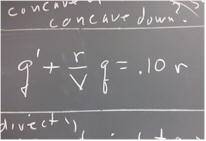 concave
concave down?
q' + r/V q = .10 r
directly